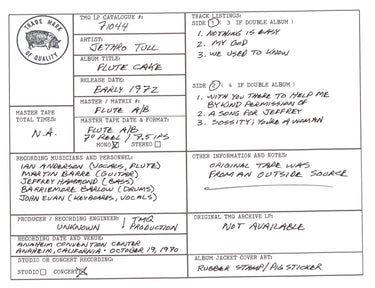 TRADE MARK
OF QUALITY
TMQ LP CATALOGUE #:
71044
ARTIST:
JETHRO TULL
ALBUM TITLE:
FLUTE CAKE
RELEASE DATE:
EARLY 1972
MASTER / MATRIX #:
FLUTE A/B
MASTER TAPE
TOTAL TIMES:
N.A.
MASTER TAPE DATE & FORMAT:
FLUTE A/B
7" REEL / 7.5 IPS
MONO ☒ STEREO ☐
TRACK LISTINGS:
SIDE 1 ( 3 IF DOUBLE ALBUM )
1. NOTHING IS EASY
2. MY GOD
3. WE USED TO KNOW
SIDE 2 ( 4 IF DOUBLE ALBUM )
1. WITH YOU THERE TO HELP ME
BY KIND PERMISSION OF
2. A SONG FOR JEFFREY
3. SOSSITY; YOU'RE A WOMAN
RECORDING MUSICIANS AND PERSONNEL:
IAN ANDERSON (VOCALS, FLUTE)
MARTIN BARRE (GUITAR)
JEFFREY HAMMOND (BASS)
BARRIEMORE BARLOW (DRUMS)
JOHN EVAN (KEYBOARDS, VOCALS)
OTHER INFORMATION AND NOTES:
ORIGINAL TAPE WAS
FROM AN OUTSIDE SOURCE
PRODUCER / RECORDING ENGINEER:
UNKNOWN / TMQ PRODUCTION
RECORDING DATE AND VENUE:
ANAHEIM CONVENTION CENTER
ANAHEIM, CALIFORNIA · OCTOBER 19, 1970
STUDIO OR CONCERT RECORDING:
STUDIO ☐ CONCERT ☒
ORIGINAL TMQ ARCHIVE LP:
NOT AVAILABLE
ALBUM JACKET COVER ART:
RUBBER STAMP / PIG STICKER